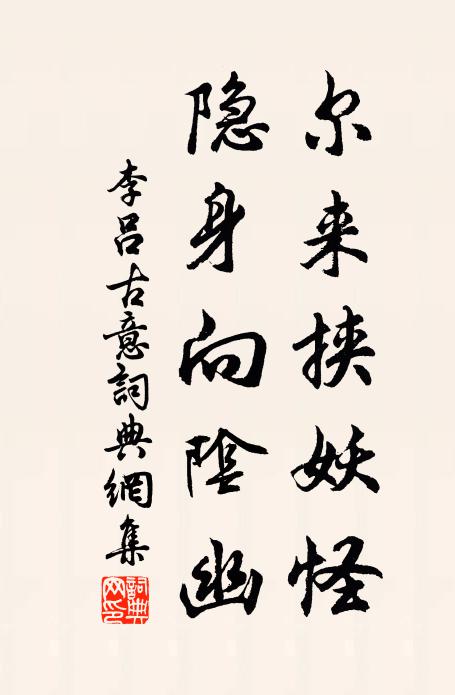 尔来挟妖怪
隐身向陰幽
李吕古意詞典網集
詞典网印